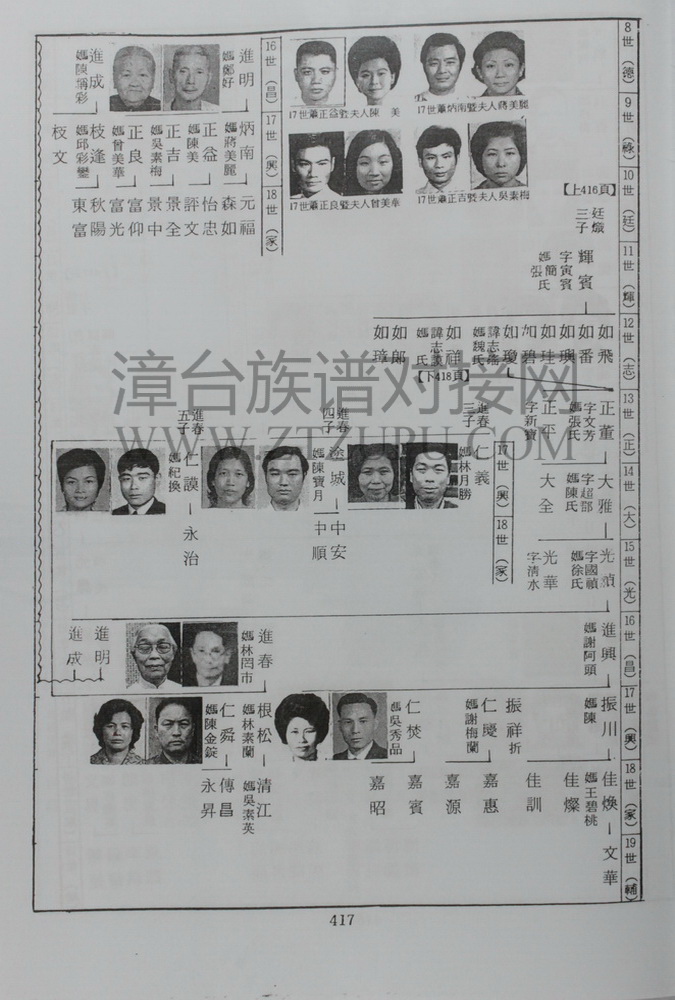 8世（德）
9世（祿）
10世（廷）
11世（輝）
12世（志）
13世（正）
14世（大）
15世（光）
16世（昌）
17世（興）
18世（家）
19世（輔）
【上416頁】
廷燉
三子
輝賓
字寅賓
媽簡氏
張氏
如飛
如番
如璵
如珪
如碧
如瓊
諱志瑤
媽魏氏
如祥
諱志謨
媽氏
【下418頁】
如郎
如璋
正董
字文芳
媽張氏
正平
字新寶
大雅
字超郡
媽陳氏
大全
光禎
字國禎
媽徐氏
光華
字清水
進興
媽謝阿頭
進春
媽林罔市
進明
進成
振川
媽陳
振祥 折
仁慶
媽謝梅蘭
仁焚
媽吳秀品
根松
媽林素蘭
仁舜
媽陳金錠
佳煥
媽王碧桃
佳燦
佳訓
嘉惠
嘉源
嘉賓
嘉昭
清江
媽吳素英
傳昌
永昇
文華
17世（興）
18世（家）
進春
三子
仁義
媽林月勝
進春
四子
塗城
媽陳寶月
中安
中順
進春
五子
仁謨
媽紀換
永治
16世（昌）
17世（興）
18世（家）
進明
媽鄭好
進成
媽陳隨彩
炳南
媽蔣美麗
正益
媽陳美
正吉
媽吳素梅
正良
媽曾美華
枝逢
媽邱彩鑾
枝文
元福
森如
怡忠
評文
景全
景中
富仰
富光
秋陽
東富
17世蕭正益暨夫人陳 美
17世蕭炳南暨夫人蔣美麗
17世蕭正良暨夫人曾美華
17世蕭正吉暨夫人吳素梅
漳台族谱对接网
WWW.ZTZUPU.COM
417